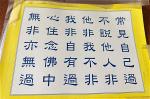 常見自己過
不說他人非
他非我不非
我非自有過
心住念佛中
無非亦無過